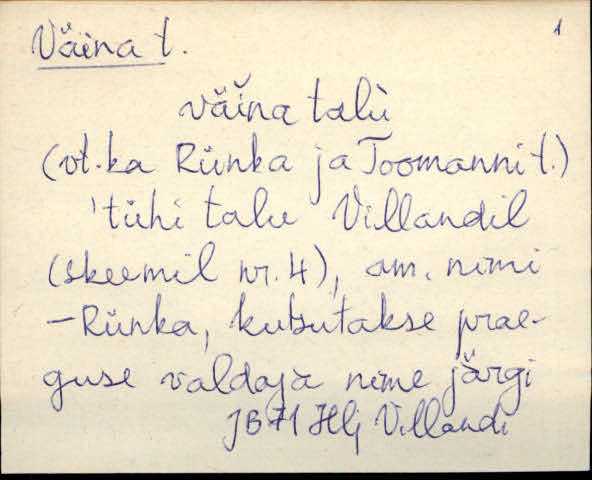 Väina t. 1
väĭna talù
(vt. ka Rünka ja Toomanni t.)
'tühi talu Villandil
(skeemil nr. 4), am. nimi
– Rünka, kutsutakse prae-
guse valdaja nime järgi
JB 71 Hlj Villandi